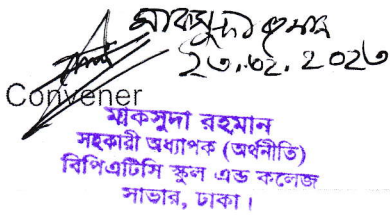 মাকসুদা রহমান
Convener
মাকসুদা রহমান
সহকারী অধ্যাপক (অর্থনীতি)
বিপিএটিসি স্কুল এন্ড কলেজ
সাভার, ঢাকা।